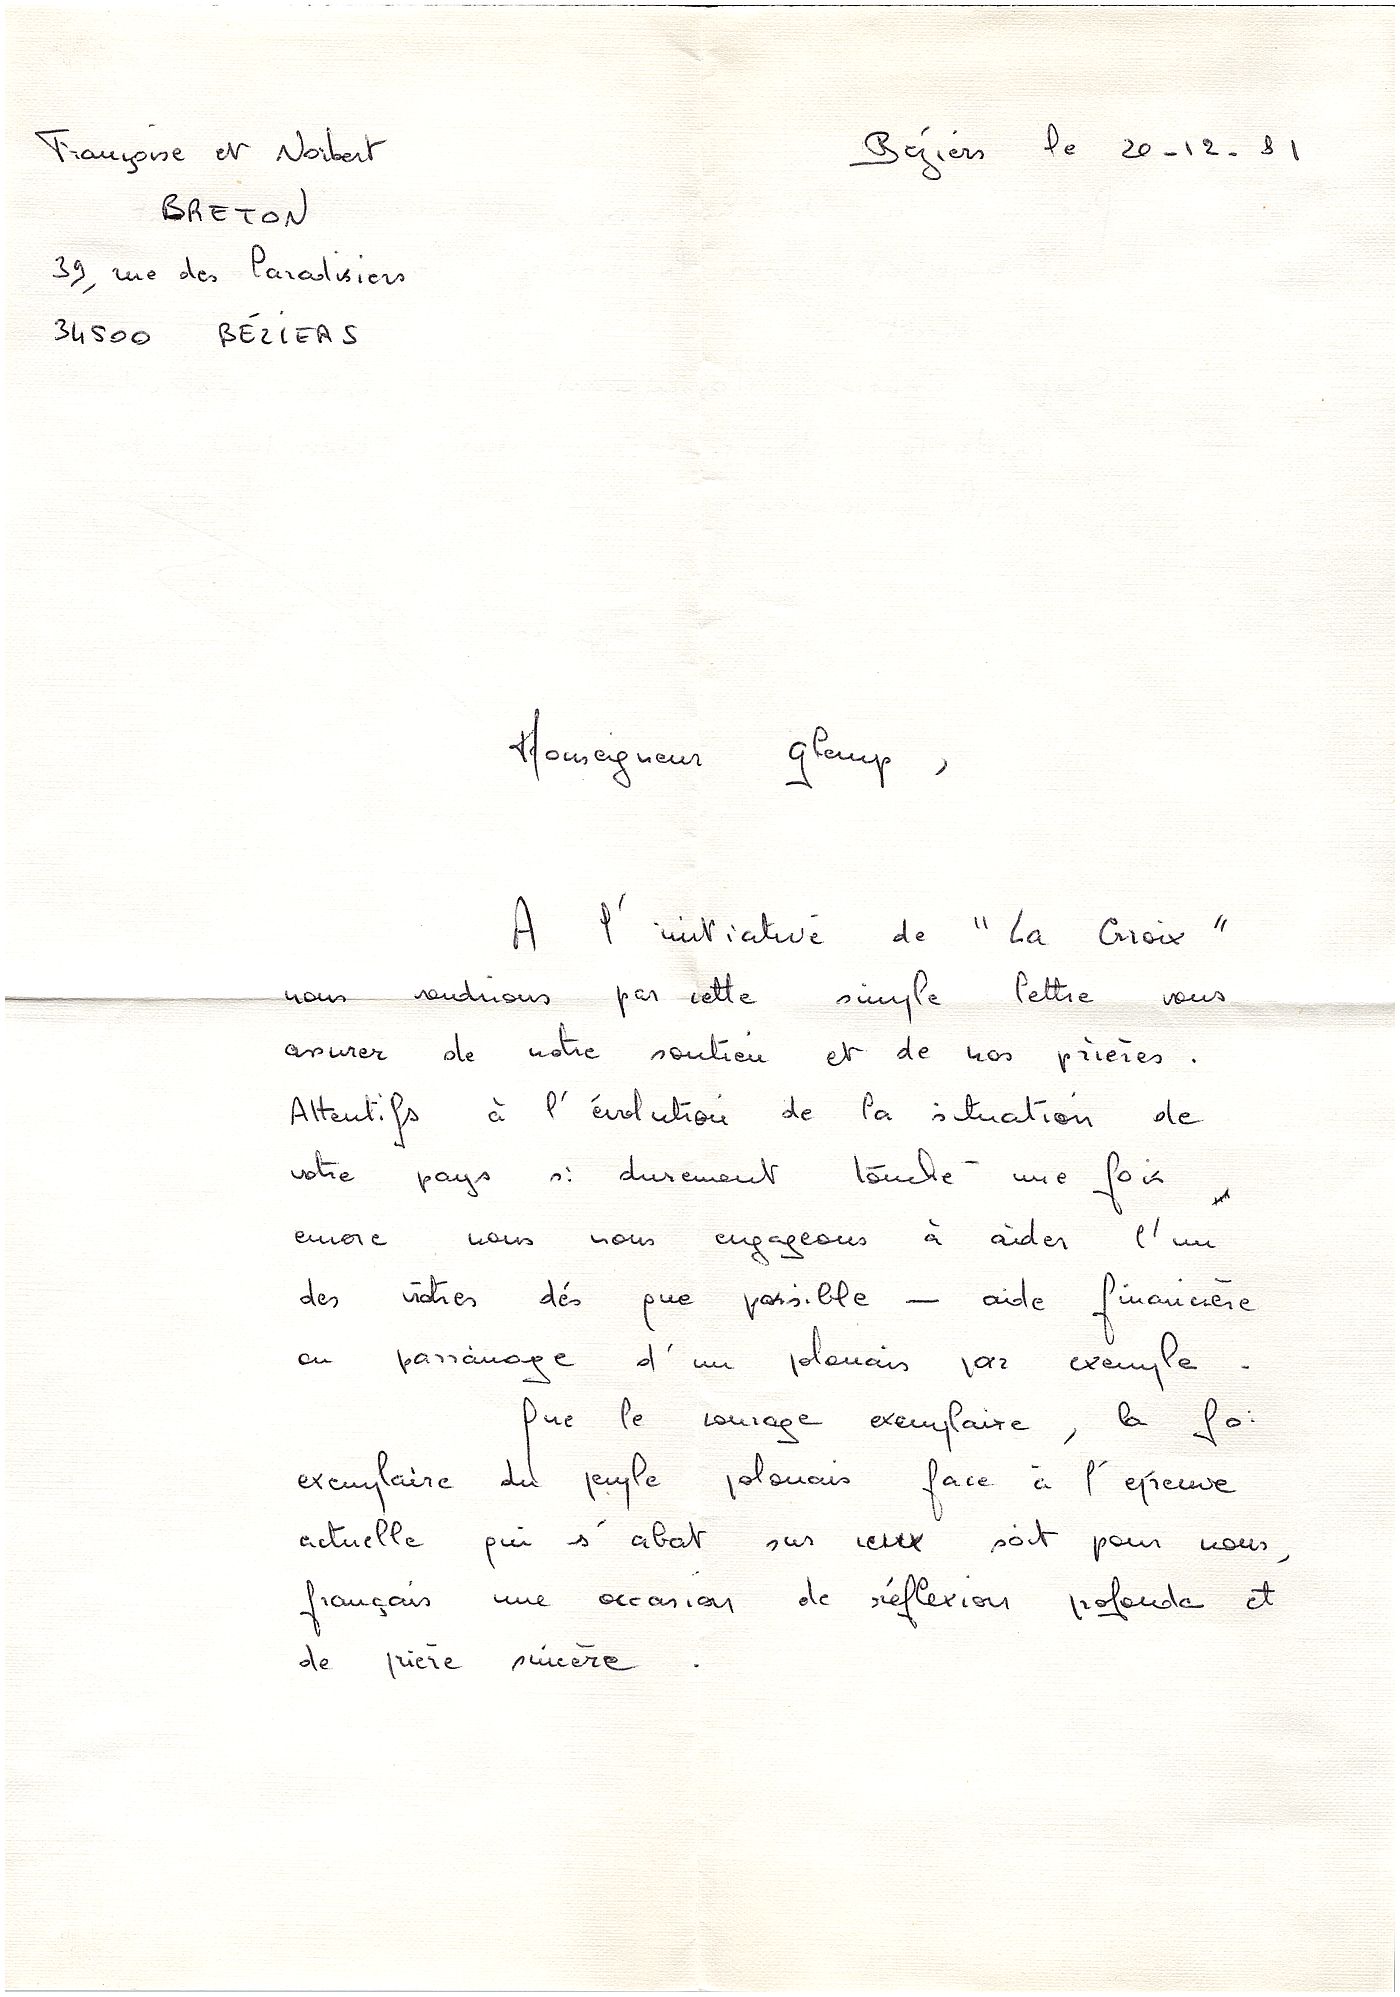 Françoise et Norbert
Béziers le 20-12-81
BRETON
39, rue des Paradisiers
34500 BÉZIERS
Monseigneur Glemp,
A l'initiative de "La Croix"
nous voudrions par cette simple lettre vous
assurer de notre soutien et de nos prières.
Attentifs à l'évolution de la situation de
votre pays si durement touché une fois
encore nous nous engageons à aider l'un
des vôtres dés que possible — aide financière
ou parrainage d'un polonais par exemple.
Que le courage exemplaire, la foi
exemplaire du peuple polonais face à l'épreuve
actuelle qui s'abat sur eux soit pour nous,
français une occasion de réflexion profonde et
de prière sincère.